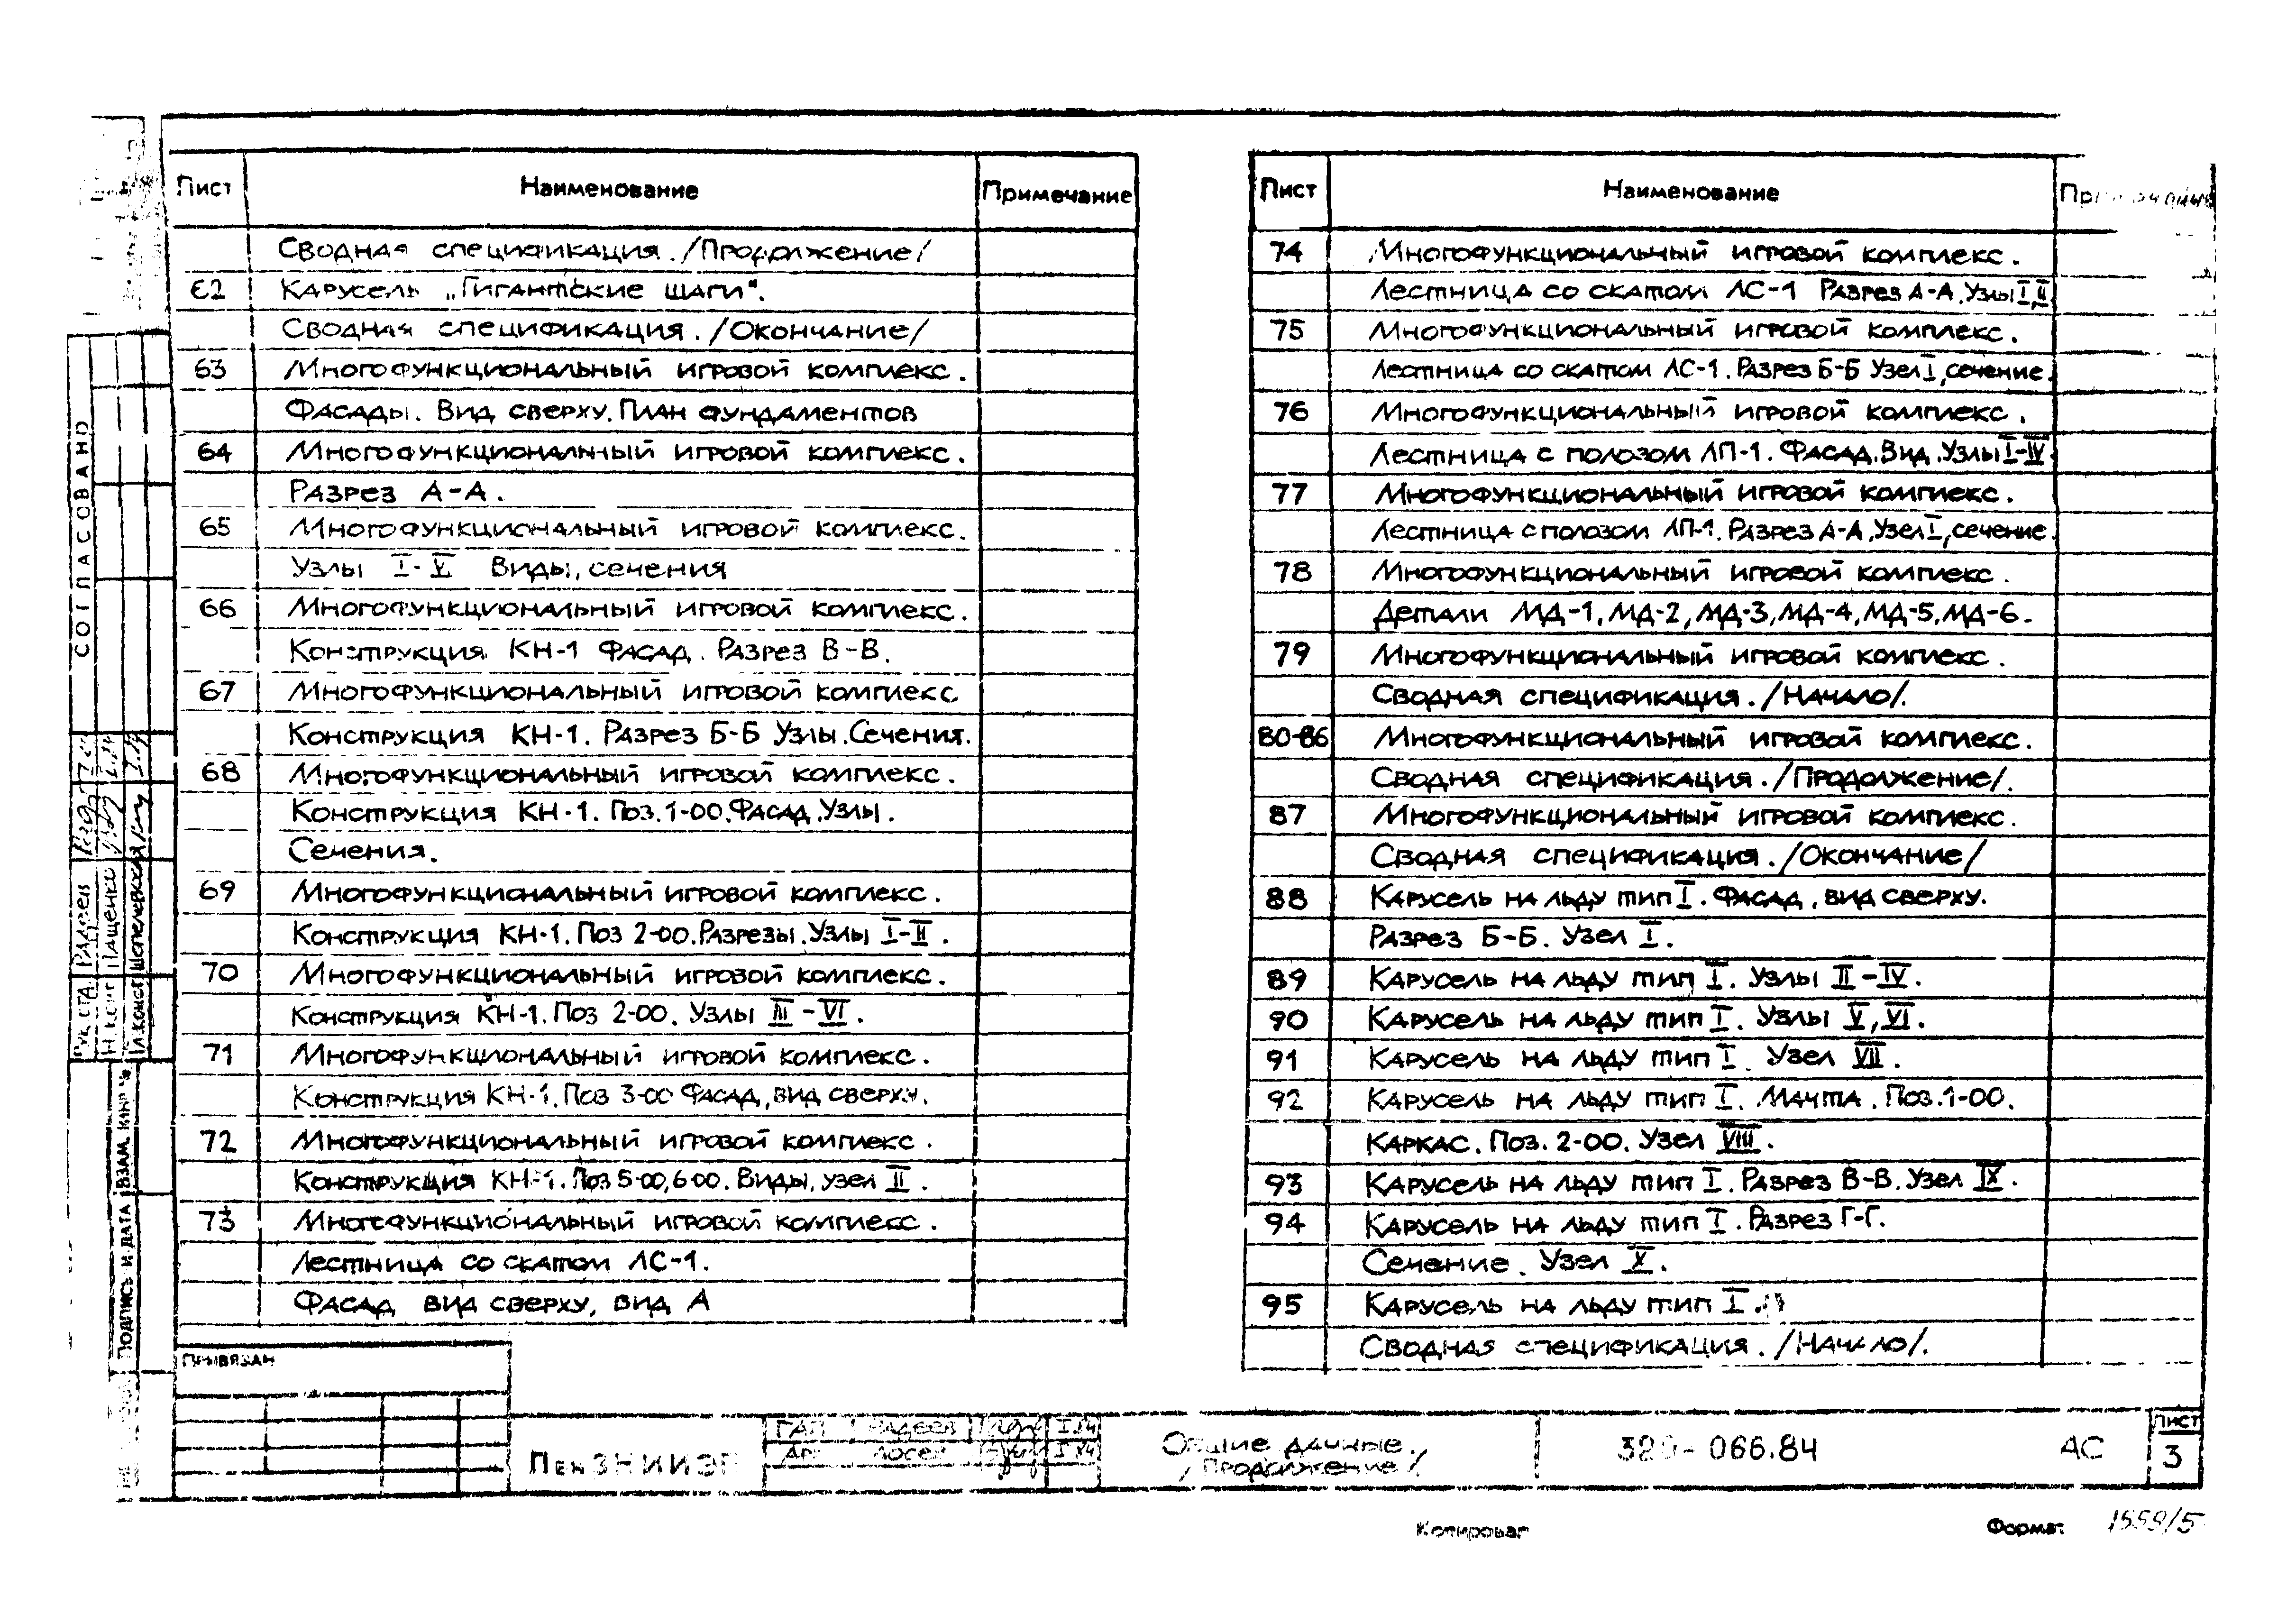 Лист Наименование Примечание
Сводная спецификация. /Продолжение/
62 Карусель „Гигантские шаги".
Сводная спецификация. /Окончание/
63 Многофункциональный игровой комплекс.
Фасады. Вид сверху. План фундаментов
64 Многофункциональный игровой комплекс.
Разрез А-А.
65 Многофункциональный игровой комплекс.
Узлы I-V Виды, сечения
66 Многофункциональный игровой комплекс.
Конструкция КН-1 Фасад. Разрез В-В.
67 Многофункциональный игровой комплекс
Конструкция КН-1. Разрез Б-Б Узлы. Сечения.
68 Многофункциональный игровой комплекс.
Конструкция КН-1. Поз. 1-00. Фасад. Узлы.
Сечения.
69 Многофункциональный игровой комплекс.
Конструкция КН-1. Поз 2-00. Разрезы. Узлы I-II.
70 Многофункциональный игровой комплекс.
Конструкция КН-1. Поз 2-00. Узлы III-VI.
71 Многофункциональный игровой комплекс.
Конструкция КН-1. Поз 3-00 Фасад, вид сверху.
72 Многофункциональный игровой комплекс.
Конструкция КН-1. Поз 5-00, 6-00. Виды, узел II.
73 Многофункциональный игровой комплекс.
Лестница со скатом ЛС-1.
Фасад вид сверху, вид А
Лист Наименование
74 Многофункциональный игровой комплекс.
Лестница со скатом ЛС-1 Разрез А-А. Узлы I, II
75 Многофункциональный игровой комплекс.
Лестница со скатом ЛС-1. Разрез Б-Б Узел I, сечение.
76 Многофункциональный игровой комплекс.
Лестница с полозом ЛП-1. Фасад. Вид. Узлы I-IV.
77 Многофункциональный игровой комплекс.
Лестница с полозом ЛП-1. Разрез А-А, Узел I, сечение.
78 Многофункциональный игровой комплекс.
Детали МД-1, МД-2, МД-3, МД-4, МД-5, МД-6.
79 Многофункциональный игровой комплекс.
Сводная спецификация. /Начало/.
80-86 Многофункциональный игровой комплекс.
Сводная спецификация. /Продолжение/.
87 Многофункциональный игровой комплекс.
Сводная спецификация. /Окончание/
88 Карусель на льду тип I. Фасад, вид сверху.
Разрез Б-Б. Узел I.
89 Карусель на льду тип I. Узлы II-IV.
90 Карусель на льду тип I. Узлы V, VI.
91 Карусель на льду тип I. Узел VII.
92 Карусель на льду тип I. Мачта. Поз. 1-00.
Каркас. Поз. 2-00. Узел VIII.
93 Карусель на льду тип I. Разрез В-В. Узел IX.
94 Карусель на льду тип I. Разрез Г-Г.
Сечение. Узел X.
95 Карусель на льду тип I.
Сводная спецификация. /Начало/.
СОГЛАСОВАНО
Пащенко
Взам. инв. №
Подпись и дата
Привязан
ПензНИИЭП
ГАП
Общие данные.
/Продолжение/
066.84
АС
Лист
3
Копировал
Формат
1559/5